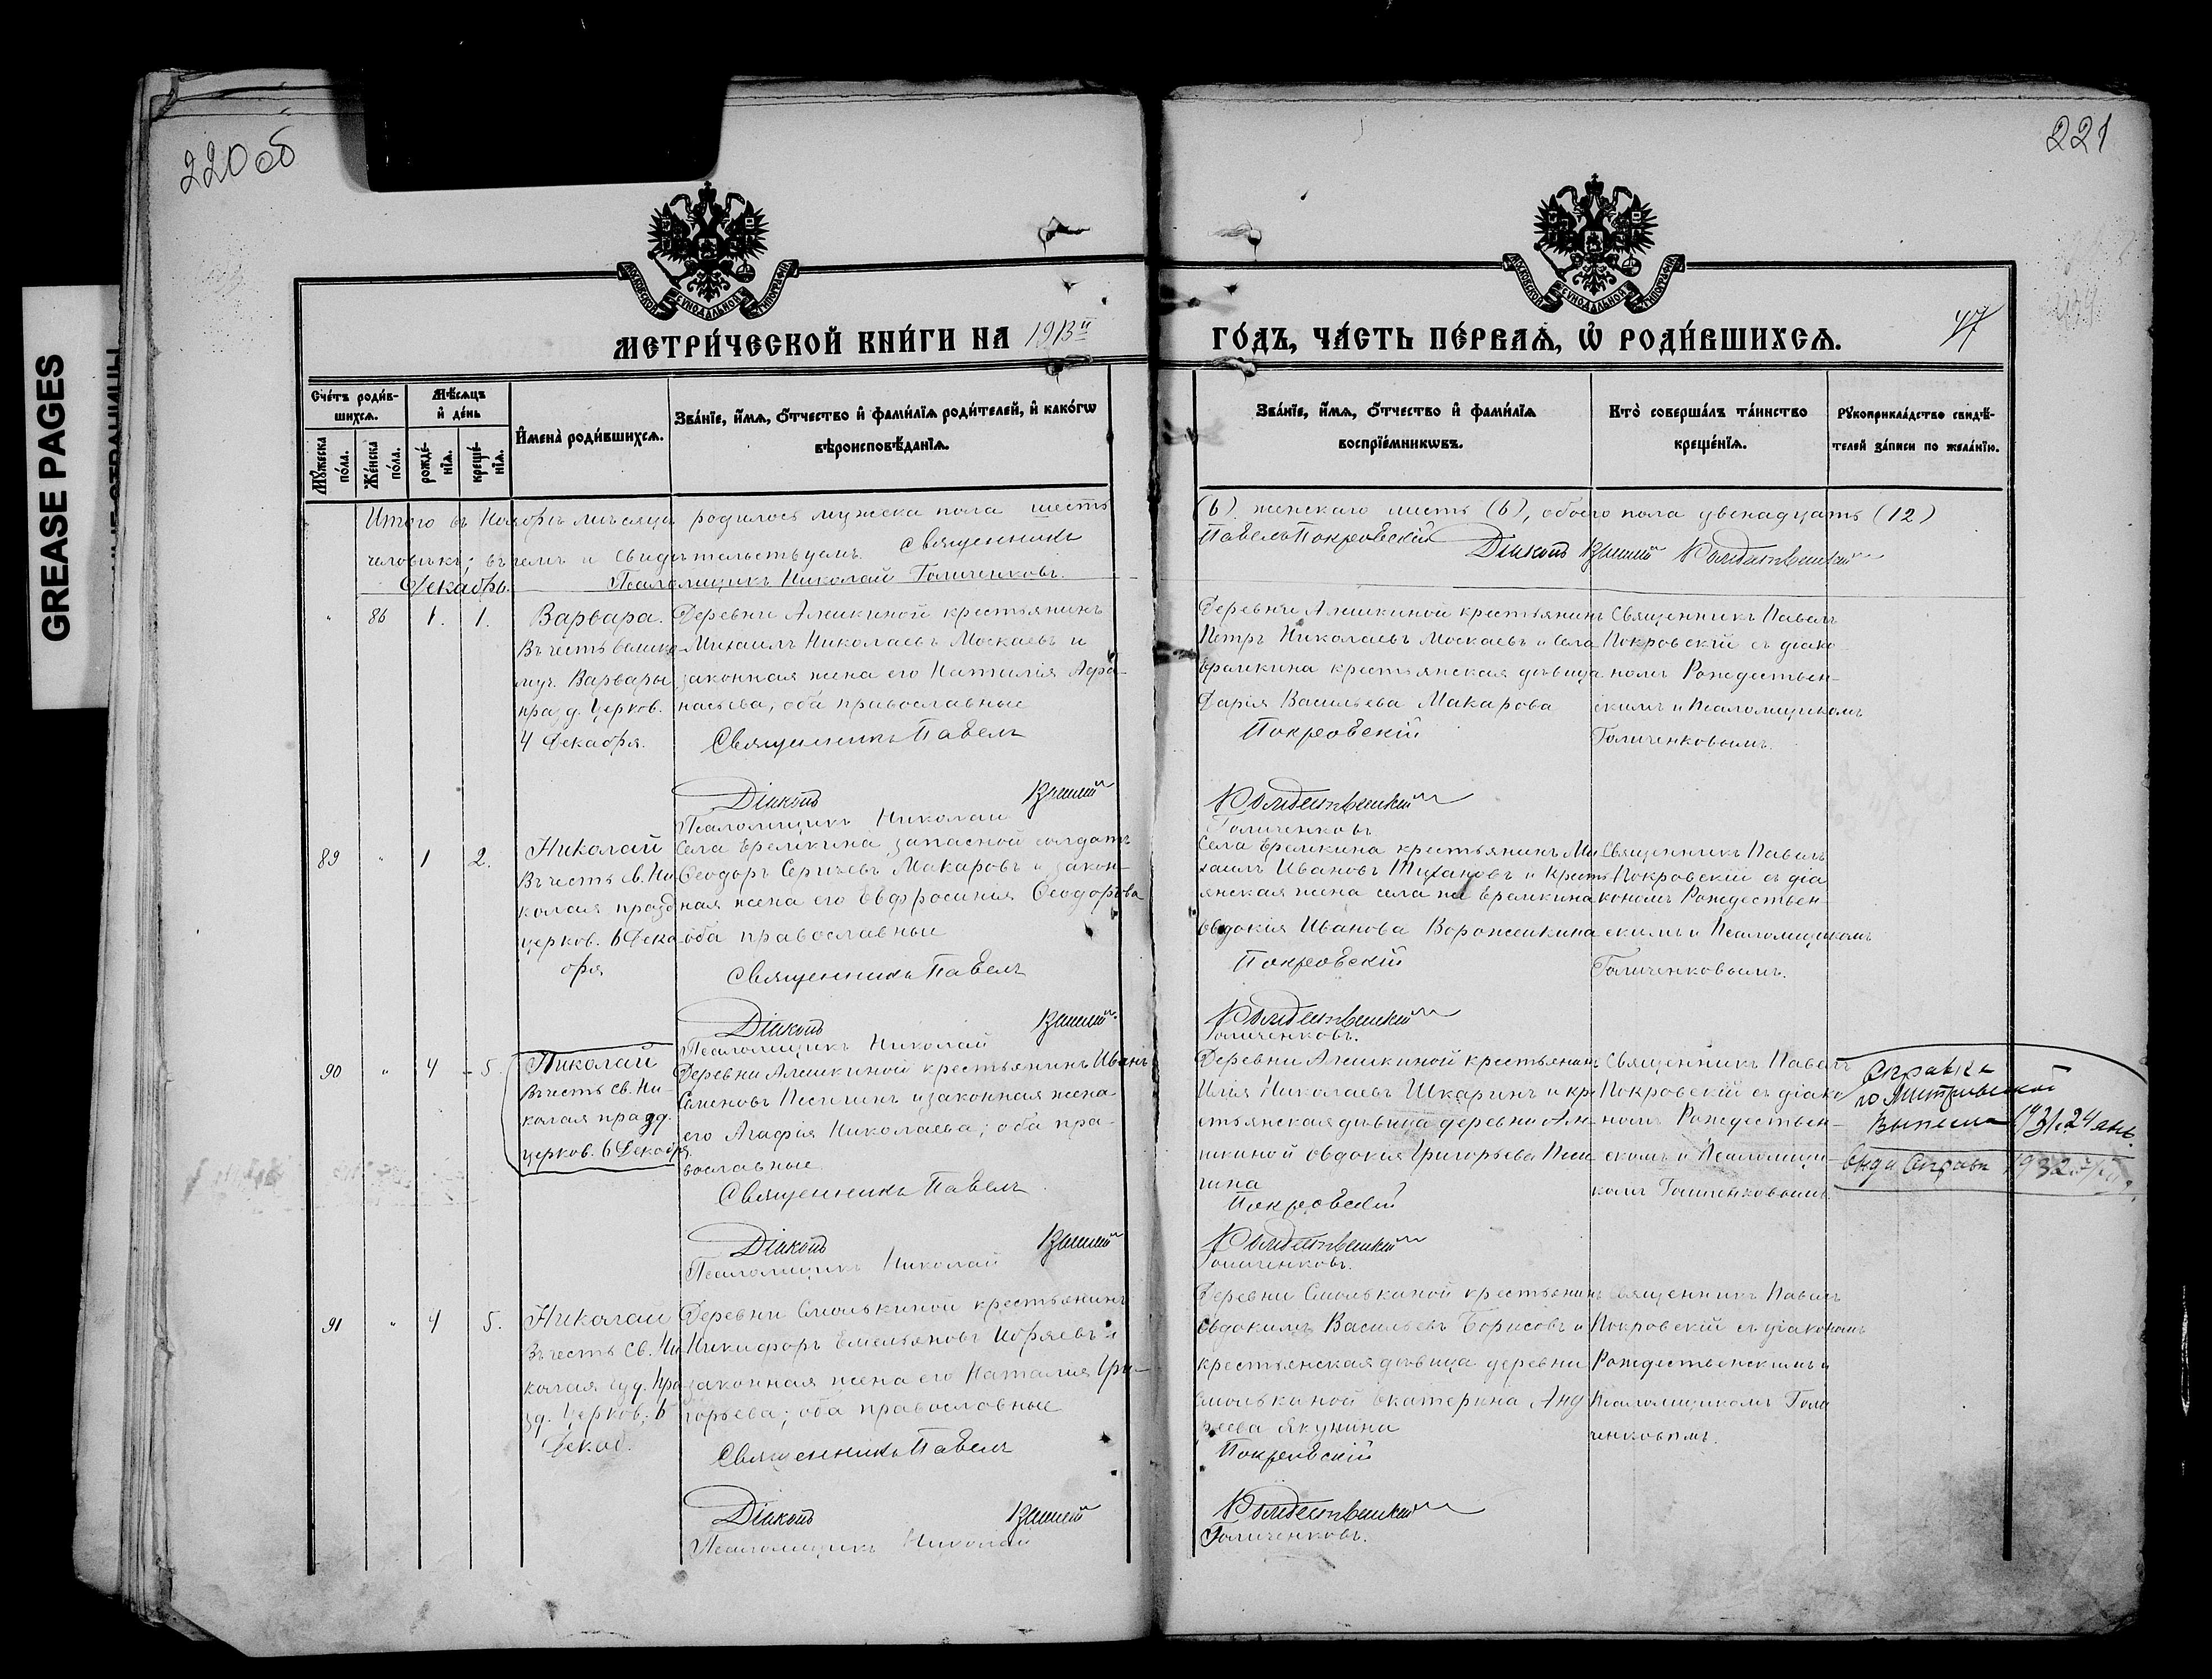 GREASE PAGES
220 об
221
МЕТРИ́ЧЕСКОЙ КНИ́ГИ НА 1913й ГО́ДЪ, ЧА́СТЬ ПЕ́РВАѦ, Ѽ РОДИ́ВШИХСѦ.
47
Сче́тъ роди́в-
шихсѧ.
Мѣ́сѧцъ
и҆ де́нь
И҆мена̀ роди́вшихсѧ.
Зва́нїе, и҆́мѧ, ѻ҆́тчество и҆ фами́лїѧ роди́телей, и҆ како́гѡ
вѣроисповѣ́данїѧ.
Зва́нїе, и҆́мѧ, ѻ҆́тчество и҆ фами́лїѧ
воспрїе́мникѡвъ.
Кто̀ соверша́лъ та́инство
креще́нїѧ.
Рꙋкоприкла́дство свидѣ́-
телей за́писи по жела́нїю.
Мꙋ́жеска
по́ла.
Же́нска
по́ла.
рожде́-
нїѧ.
креще́-
нїѧ.
Итого въ Ноябрѣ мѣсяцѣ родилось мужеска пола шесть
(6) женскаго шесть (6), обоего пола двенадцать (12)
человѣкъ; въ чемъ и свидѣтельствуемъ. Священникъ
Павелъ Покровскій Діаконъ Рождественскій
Псаломщикъ Николай Голиченковъ.
Декабрь.
" 86 1. 1.
Варвара.
Въ честь велико
муч. Варвары
празд. Церков.
4 Декабря.
Деревни Алешкиной крестьянинъ
Михаилъ Николаевъ Москаевъ и
законная жена его Наталія Афа-
насьева, оба православные
Священникъ Павелъ
Діаконъ
Псаломщикъ Николай
Деревни Алешкиной крестьянинъ
Петръ Николаевъ Москаевъ и села
Еремкина крестьянская дѣвица
Дарія Васильева Макарова
Покровскій
Рождественскій
Голиченковъ
Священникъ Павелъ
Покровскій съ діако-
номъ Рождествен-
скимъ и Псаломщикомъ
Голиченковымъ.
89 " 1 2.
Николай
Въ честь св. Ни
колая празд
церков. 6 Дека
бря
Села Еремкина запасной солдатъ
Ѳеодоръ Сергѣевъ Макаровъ и закон-
ная жена его Евфросинія Ѳеодорова
оба православные
Священникъ Павелъ
Діаконъ
Псаломщикъ Николай
Села Еремкина крестьянинъ Ми
хаилъ Ивановъ и крестъ
янская жена села Еремкина
Евдокія Иванова Ворожейкина
Покровскій
Рождественскій
Голиченковъ.
Священникъ Павелъ
Покровскій съ діа
кономъ Рождествен-
скимъ и Псаломщикомъ
Голиченковымъ.
90 " 4 5.
Николай
Въ честь св. Ни
колая празд.
церков. 6 Декабря
Деревни Алешкиной крестьянинъ Иванъ
Семеновъ и законная жена
его Агафія Николаева; оба пра-
вославные
Священникъ Павелъ
Діаконъ
Псаломщикъ Николай
Деревни Алешкиной крестьянинъ
Илія Николаевъ Шкаринъ и кре
стьянская дѣвица деревни Але
шкиной Евдокія Григорьева
Покровскій
Рождественскій
Голиченковъ.
Священникъ Павелъ
Покровскій съ діако
номъ Рождествен-
скимъ и Псаломщи-
комъ Голиченковымъ.
Справка
1931. 24 янв.
1932
91 " 4 5.
Николай
Въ честь Св. Ни
колая чуд. пра
зд. Церков. 6
Декаб.
Деревни Смолькиной крестьянинъ
Никифоръ Емельяновъ и
законная жена его Наталия Гри-
горьева; оба православные
Священникъ Павелъ
Діаконъ
Псаломщикъ Николай
Деревни Смолькиной крестьянинъ
Евдокимъ Васильевъ Борисовъ и
крестьянская дѣвица деревни
Смолькиной Екатерина Анд
реева Якунина
Покровскій
Рождественскій
Голиченковъ.
Священникъ Павелъ
Покровскій съ діакономъ
Рождественскимъ и
Псаломщикомъ Голи
ченковымъ.